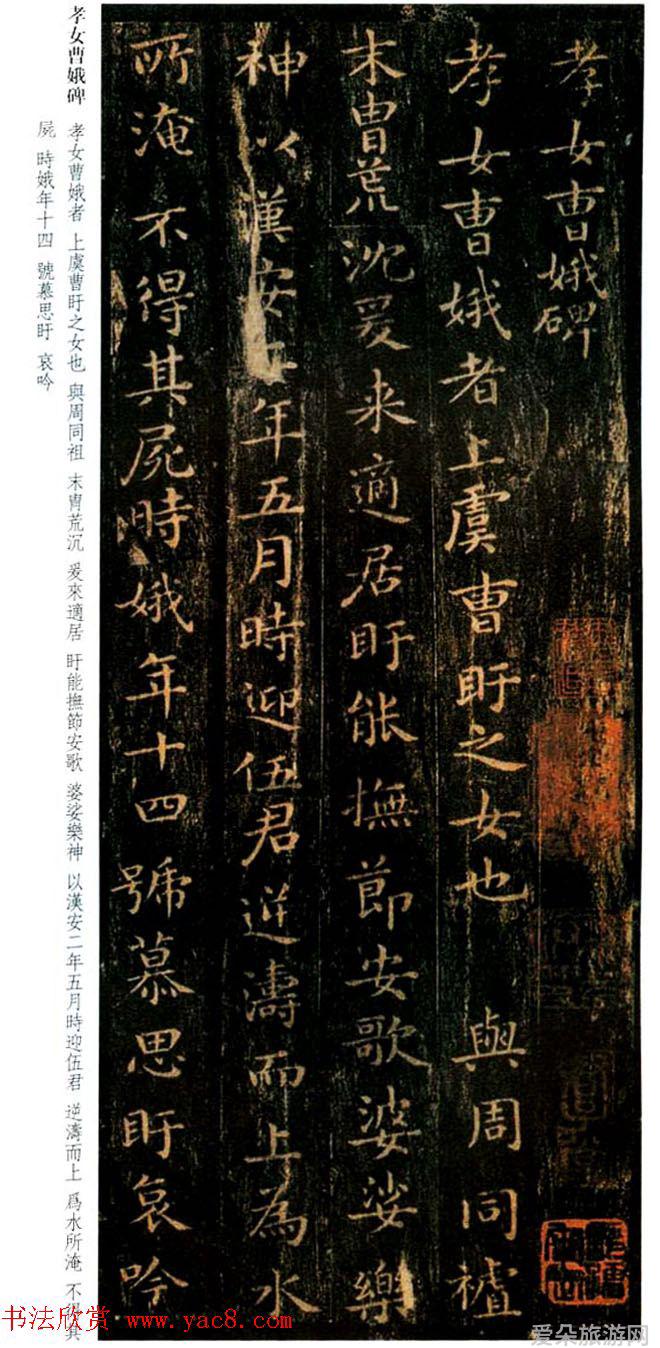 孝女曹娥碑
孝女曹娥者上虞曹盱之女也 與周同祖
末胄荒沈爰来適居盱能撫節安歌婆娑樂
神以漢安二年五月時迎伍君逆濤而上為水
所淹 不得其屍時娥年十四號慕思盱哀吟
孝女曹娥碑
孝女曹娥者 上虞曹盱之女也 與周同祖 末胄荒沉 爰來適居 盱能撫節安歌 婆娑樂神 以漢安二年五月時迎伍君 逆濤而上 爲水所淹 不得其
屍 時娥年十四 號慕思盱 哀吟
书法欣赏 www.yac8.com
爱朵旅游网